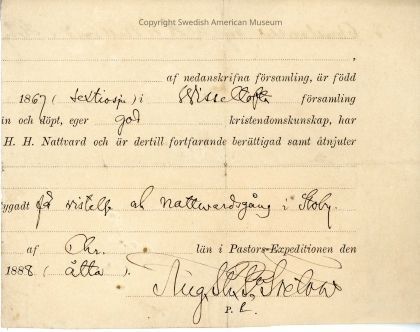 Copyright Swedish American Museum
af nedanskrifna församling, är född
1867 (sextiosju) i Wisseltofta församling
in och döpt, eger god kristendomskunskap, har
H. H. Nattvard och är dertill fortfarande berättigad samt åtnjuter
ygadt på vistelse och nattvardsgång i Stoby.
af Chr. län i Pastors-Expeditionen den
1888 (åtta).
Aug.
P. l.